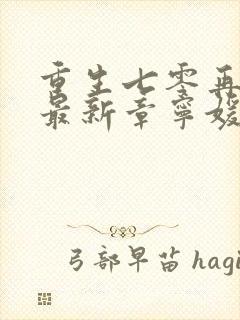 重生七零再
最新章寧媛
弓部早苗 hagi